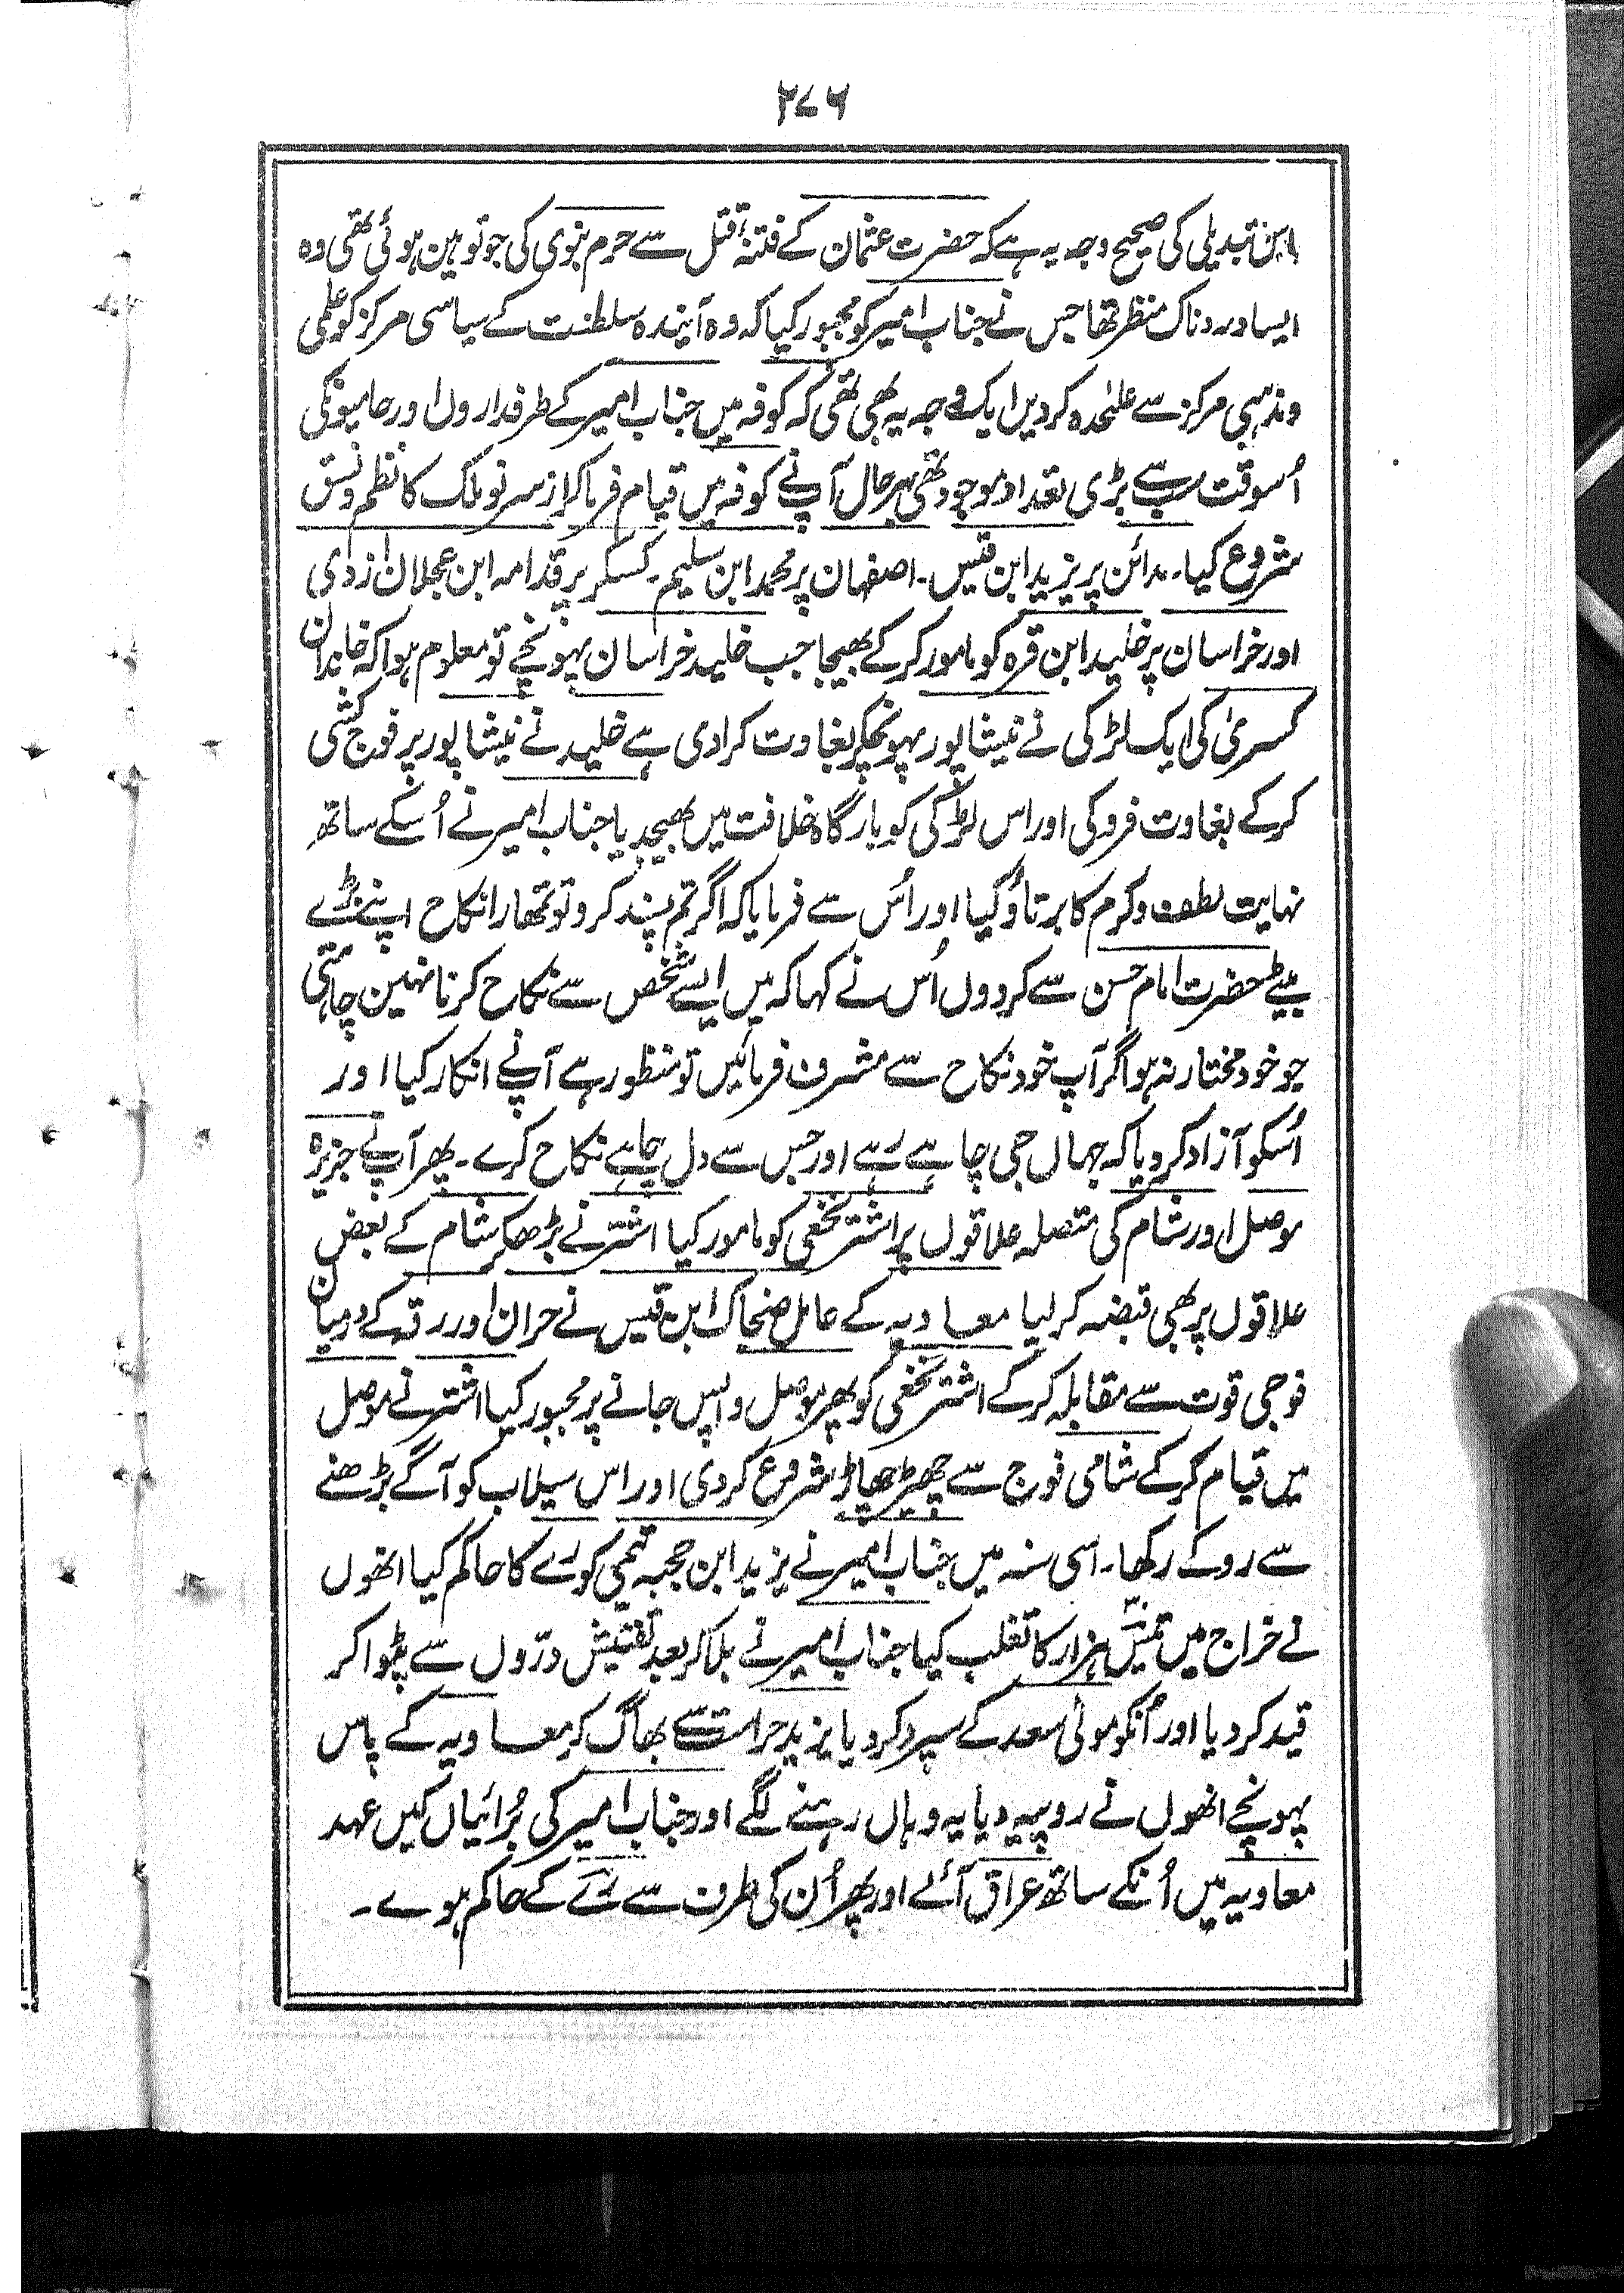 ۲۷۶
اس تبدیلی کی صحیح وجہ یہ ہے کہ حضرت عثمان کے فتنۂ قتل سے حرم نبوی کی جو توہین ہوئی تھی وہ
ایسا دردناک منظر تھا جس نے جناب امیر کو مجبور کیا کہ وہ آیندہ سلطنت کے سیاسی مرکز کو علمی
ومذہبی مرکز سے علٰحدہ کردیں ایک وجہ یہ بھی تھی کہ کوفہ میں جناب امیر کے طرفداروں اور حامیونکی
اُسوقت سب سے بڑی تعداد موجود تھی بہرحال آپنے کوفہ میں قیام فرماکر از سر نو ملک کا نظم و نسق
شروع کیا۔ مدائن پر یزید ابن قیس۔ اصفہان پر محمد ابن سلیم۔ کسکر پر قدامہ ابن عجلان ازدی
اور خراسان پر خلید ابن قرہ کو مامور کرکے بھیجا جب خلید خراسان پہونچے تو معلوم ہوا کہ خاندان
کسریٰ کی ایک لڑکی نے نیشاپور پہونچکر بغاوت کرادی ہے خلید نے نیشاپور پر فوج کشی
کرکے بغاوت فرو کی اور اس لڑکی کو بارگاہ خلافت میں بھیجدیا جناب امیر نے اُسکے ساتھ
نہایت لطف و کرم کا برتاؤ کیا اور اُس سے فرمایا کہ اگر تم پسند کرو تو تمھارا نکاح اپنے بڑے
بیٹے حضرت امام حسن سے کردوں اُس نے کہا کہ میں ایسے شخص سے نکاح کرنا نہین چاہتی
جو خود مختار نہ ہو اگر آپ خود نکاح سے مشرف فرمائیں تو منظور ہے آپنے انکار کیا اور
اُسکو آزاد کردیا کہ جہاں جی چاہے رہے اور جس سے دل چاہے نکاح کرے۔ پھر آپنے جزیرہ
موصل اور شام کی متصلہ علاقوں پر اشتر نخعی کو مامور کیا اشتر نے بڑھکر شام کے بعض
علاقوں پر بھی قبضہ کرلیا معاویہ کے عامل ضحاک ابن قیس نے حران اور رقہ کے درمیان
فوجی قوت سے مقابلہ کرکے اشتر نخعی کو پھر موصل واپس جانے پر مجبور کیا اشتر نے موصل
میں قیام کرکے شامی فوج سے چھیڑ چھاڑ شروع کردی اور اس سیلاب کو آگے بڑھنے
سے روکے رکھا۔ اسی سنہ میں جناب امیر نے یزید ابن حجبہ تیمی کو رے کا حاکم کیا انھوں
نے خراج میں تیس ہزار کا تغلب کیا جناب امیر نے بلاکر بعد تفتیش درّوں سے پٹواکر
قید کردیا اور اُنکو مولیٰ سعد کے سپرد کردیا یزید حراست سے بھاگ کر معاویہ کے پاس
پہونچے انھوں نے روپیہ دیا یہ وہاں رہنے لگے اور جناب امیر کی بُرائیاں کیں عہد
معاویہ میں اُنکے ساتھ عراق آئے اور پھر اُن کی طرف سے رے کے حاکم ہوے۔